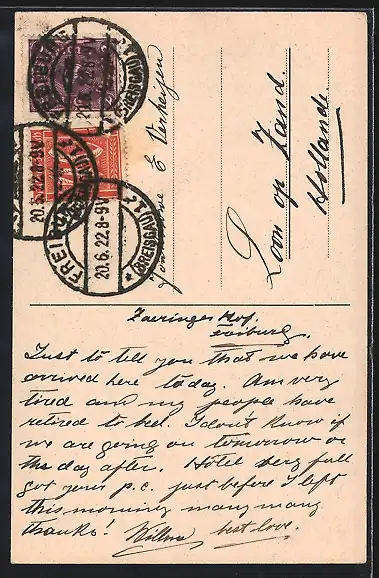 FREIBURG
(BREISGAU) 1
20.6.22.8-9V
FREIBURG
(BREISGAU) 1
20.6.22.8-9V
E Verheijen
Loon op Zand.
Hollande
Zaeringer Hof.
Freiburg.
Just to tell you that we have
arrived here today. Am very
tired and my people have
retired to bed. I don't know if
we are going on tomorrow or
the day after. Hôtel very full
got your p.c. just before I left
this morning many many
thanks! best love.